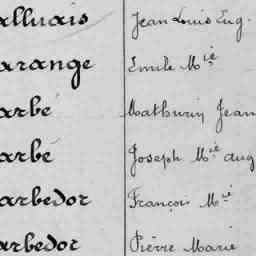 alluais Jean Louis Eug.
arange Emile Mie
arbé Mathurin Jean
arbé Joseph Mie Aug
arbedor François Mie
arbedor Pierre Marie